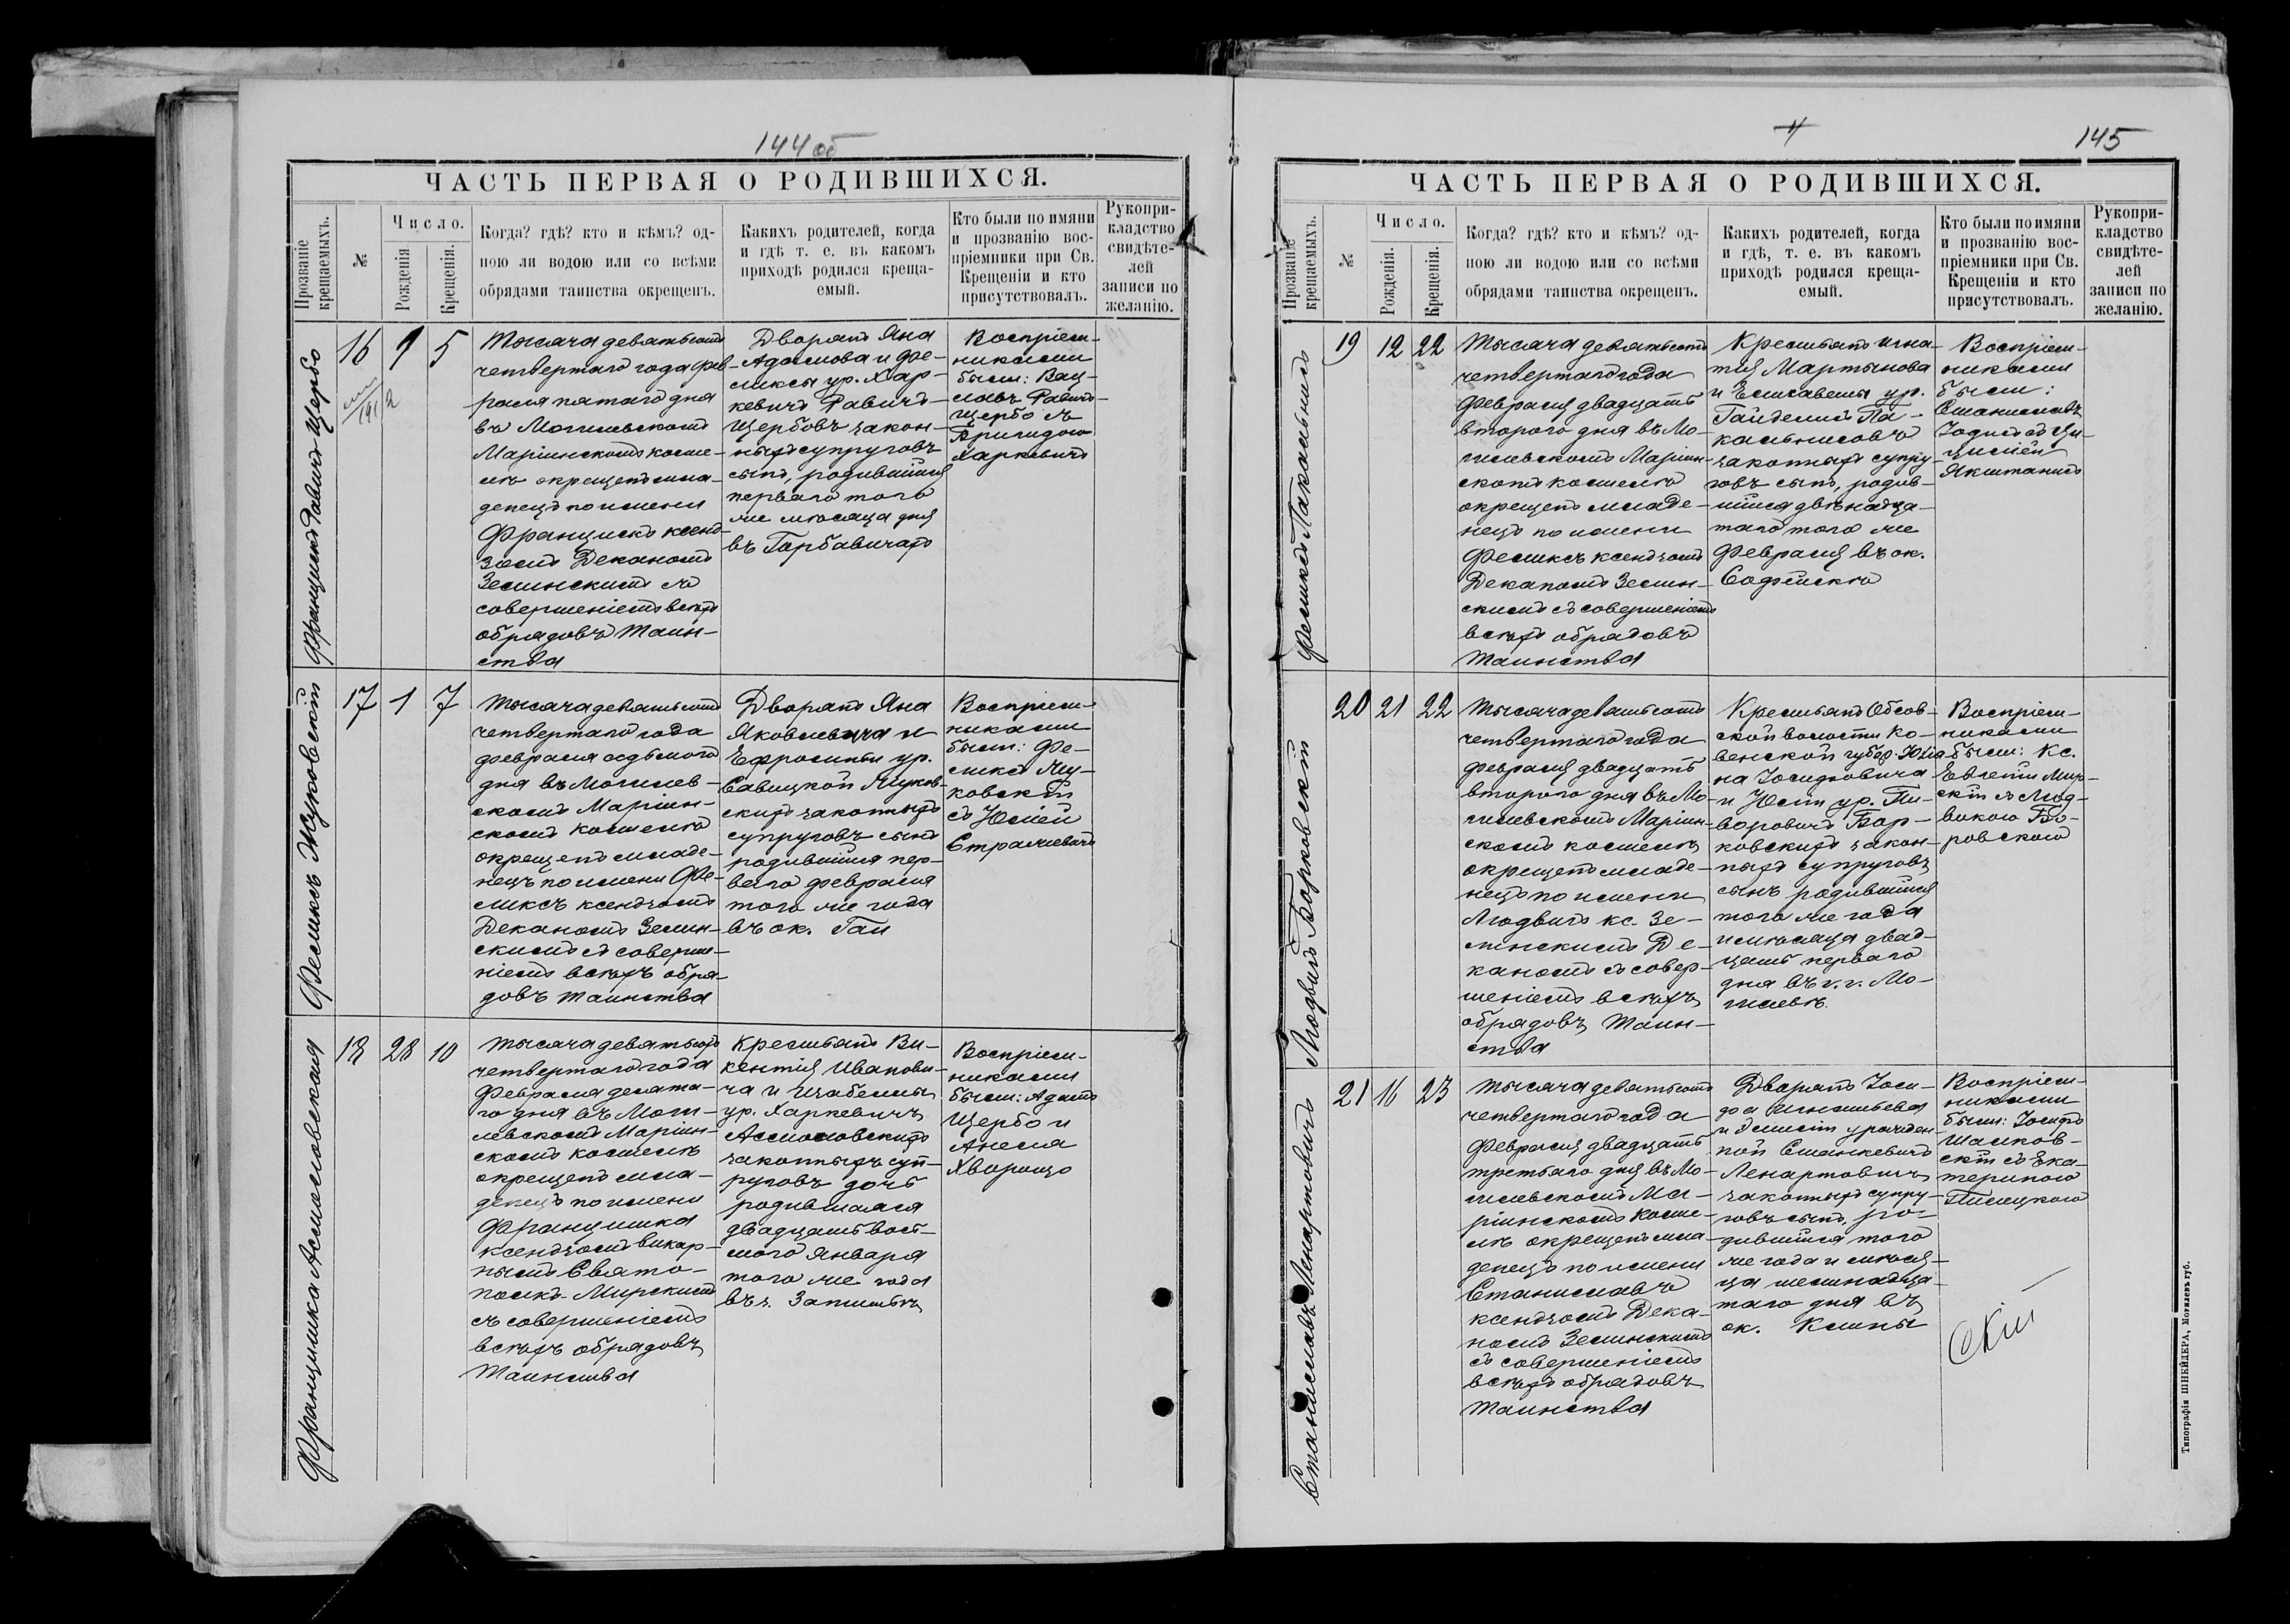 144 об
ЧАСТЬ ПЕРВАЯ О РОДИВШИХСЯ.
Прозваніе крещаемыхъ.
№
Число.
Рожденія
Крещенія.
Когда? гдѣ? кто и кѣмъ? од-
ною ли водою или со всѣми
обрядами таинства окрещенъ.
Какихъ родителей, когда
и гдѣ т. е. въ какомъ
приходѣ родился креща-
емый.
Кто были по имяни
и прозванію вос-
пріемники при Св.
Крещеніи и кто
присутствовалъ.
Рукопри-
кладство
свидѣте-
лей
записи по
желанію.
Францискъ Равичъ-Щербо
16
5
Тысяча девятьсотъ
четвертаго года фев-
раля пятаго дня
въ Могилевскомъ
Маріинскомъ косте-
лѣ окрещенъ мла-
денецъ по имени
Францискъ ксенд-
зомъ Деканомъ
Зелинскимъ съ
совершеніемъ всѣхъ
обрядовъ Таин-
ства
Дворянъ Яна
Адамова и Фе-
ликсы ур. Хар-
кевичъ Равичъ-
Щербовъ закон-
ныхъ супруговъ
сынъ, родившійся
перваго того
же мѣсяца дня
въ Горбавичахъ
Воспріем-
никами
были: Вац-
лавъ Равичъ-
Щербо съ
Бригидою
Харкевичъ
Феликсъ Жуковскій
17
1
7
Тысяча девятьсотъ
четвертаго года
февраля седьмого
дня въ Могилев-
скомъ Маріин-
скомъ костелѣ
окрещенъ младе-
нецъ по имени Фе-
ликсъ ксендзомъ
Деканомъ Зелин-
скимъ съ соверше-
ніемъ всѣхъ обря-
довъ таинства
Дворянъ Яна
Яковлевича и
Ефросиньи ур.
Савицкой Жуков-
скихъ законныхъ
супруговъ сынъ
родившійся пер-
ваго февраля
того же года
въ ок. Гаи
Воспріем-
никами
были: Фе-
ликсъ Жу-
ковскій
съ Юліей
Францишка Ассмоловская
18
28
10
Тысяча девятьсотъ
четвертаго года
Февраля десята-
го дня въ Моги-
левскомъ Маріин-
скомъ костелѣ
окрещенъ мла-
денецъ по имени
Францишка
ксендзомъ викар-
нымъ Свято-
полкъ-Мирскимъ
съ совершеніемъ
всѣхъ обрядовъ
Таинства
Крестьянъ Ви-
кентія Иванови-
ча и Изабеллы
ур. Харкевичъ
Ассмоловскихъ
законныхъ суп-
руговъ дочь
родившаяся
двадцать вось-
мого Января
того же года
въ
Воспріем-
никами
были: Адамъ
Щербо и
Анеля
Хворощо
145
ЧАСТЬ ПЕРВАЯ О РОДИВШИХСЯ.
Прозваніе крещаемыхъ.
№
Число.
Рожденія.
Крещенія.
Когда? гдѣ? кто и кѣмъ? од-
ною ли водою или со всѣми
обрядами таинства окрещенъ.
Какихъ родителей, когда
и гдѣ, т. е. въ какомъ
приходѣ родился креща-
емый.
Кто были по имяни
и прозванію вос-
пріемники при Св.
Крещеніи и кто
присутствовалъ.
Рукопри-
кладство
свидѣте-
лей
записи по
желанію.
Феликсъ Пакальнисъ
19
12
22
Тысяча девятьсотъ
четвертаго года
Февраля двадцать
второго дня въ Мо-
гилевскомъ Маріин-
скомъ костелѣ
окрещенъ младе-
нецъ по имени
Феликсъ ксендзомъ
Деканомъ Зелин-
скимъ съ совершеніемъ
всѣхъ обрядовъ
Таинства
Крестьянъ Игна-
тія Мартынова
и Елисаветы ур.
Гайделисъ Па-
кальнисовъ
законныхъ супру-
говъ сынъ, родив-
шійся двѣнадца-
таго того же
Февраля въ ок.
Софійскѣ
Воспріем-
никами
были:
Станиславъ
Людвигъ Борковскій
20
21
22
Тысяча девятьсотъ
четвертаго года
Февраля двадцать
второго дня въ Мо-
гилевскомъ Маріин-
скомъ костелѣ
окрещенъ младе-
нецъ по имени
Людвигъ кс. Зе-
линскимъ Де-
каномъ съ совер-
шеніемъ всѣхъ
обрядовъ Таин-
ства
Крестьянъ
ской волости Ко-
венской губер.
на Іосифовича
и Юліи ур. Пи-
воровичъ Бор-
ковскихъ закон-
ныхъ супруговъ
сынъ родившійся
того же года
и мѣсяца двад-
цать перваго
дня въ г. г. Мо-
гилевѣ.
Воспріем-
никами
были: Кс.
Евгеній Мир-
скій съ Люд-
викою Бо-
ровского
Станиславъ Ленартовичъ
21
16
23
Тысяча девятьсотъ
четвертаго года
Февраля двадцать
третьяго дня въ Мо-
гилевскомъ Ма-
ріинскомъ косте-
лѣ окрещенъ мла-
денецъ по имени
Станиславъ
ксендзомъ Дека-
номъ Зелинскимъ
съ совершеніемъ
всѣхъ обрядовъ
Таинства
Дворянъ Іоси-
фа Игнатьева
и Эмиліи урожден-
ной Станкевичъ
Ленартовичъ
законныхъ супру-
говъ сынъ, ро-
дившійся того
же года и мѣся-
ца шестнадца-
таго дня въ
ок. Клины
Воспріем-
никами
были: Іосифъ
скій съ Ека-
териною
Типографія ШНЕЙДЕРА, Могилевъ губ.